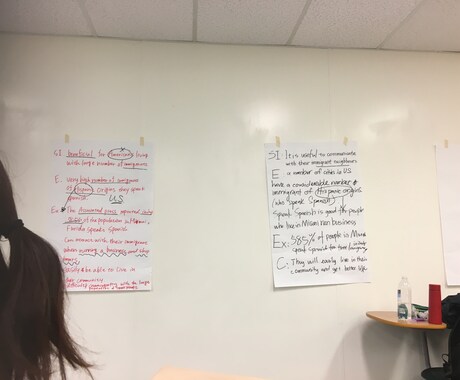 SI beneficial for Americans living
with large number of immigrants
E. very high number of immigrants
of hispanic origins, they speak
Spanish. US
Ex: The reported
of the population in
Florida speaks Spanish
Can connect with these immigrants
when running a business and shop
able to live in
community
communicating with the large
SI It is useful to communicate
with their immigrant neighbors
E a number of cities in U.S.
have a considerable number of
immigrant of Hispanic origins
(who speak Spanish)
Speak Spanish is good for people
who live in Miami run business
Ex: 58.5% of people in Miami
speak Spanish for their
C: They will easily live in their
community and get better